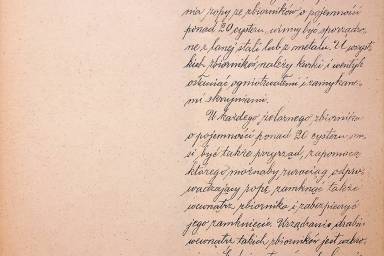 nia ropy ze zbiorników o pojemności
ponad 20 cystern, winny być sporządzo-
ne z lanej stali lub z metalu. U wszyst-
kich zbiorników należy kurki i wentyle
osłaniać ogniotrwałemi i zamykane-
mi skrzyniami.
U każdego żelaznego zbiornika
o pojemności ponad 20 cystern mu-
si być także przyrząd, zapomocą
którego możnaby rurociąg odpro-
wadzający ropę zamknąć także
wewnątrz zbiornika i zabezpieczyć
jego zamknięcie. Urządzanie drabin
wewnątrz takich zbiorników jest wzbro-